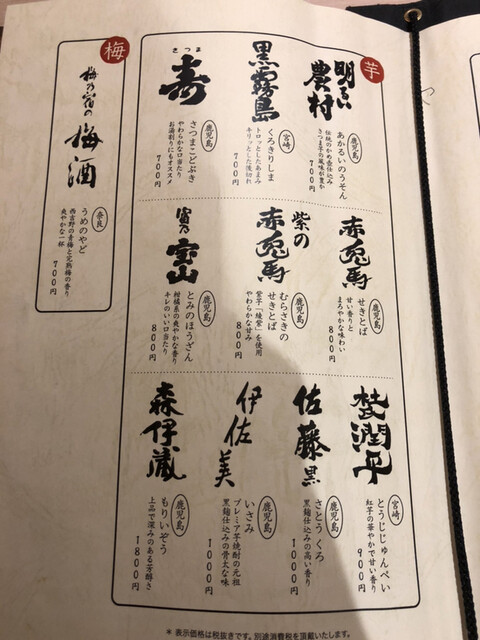 芋
明るい
農村
鹿児島
あかるいのうそん
伝統のかめ壺仕込み
さつま芋の風味が豊か
700円
黒霧島
宮崎
くろきりしま
トロっとしたあまみ
キリッとした後切れ
700円
さつま
寿
鹿児島
さつまこどぶき
やわらかな口当たり
お湯割りにもオススメ
700円
赤兎馬
鹿児島
せきとば
甘い香りと
まろやかな味わい
800円
紫の
赤兎馬
鹿児島
むらさきの
せきとば
紫芋「綾紫」を使用
やわらかな甘み
800円
富乃
宝山
鹿児島
とみのほうざん
柑橘系の爽やかな香り
キレのいい口当たり
800円
杜氏潤平
宮崎
とうじじゅんぺい
紅芋の華やかで甘い香り
900円
佐藤黒
鹿児島
さとう くろ
黒麹仕込みの高い香り
1000円
伊佐美
鹿児島
いさみ
プレミア芋焼酎の元祖
黒麹仕込みの骨太な味
1000円
森伊蔵
鹿児島
もりいぞう
上品で深みのある芳醇さ
1800円
梅
梅乃宿の
梅酒
奈良
うめのやど
西吉野の青梅と完熟梅の香り
爽やかな一杯
700円
*表示価格は税抜きです。別途消費税を頂戴いたします。